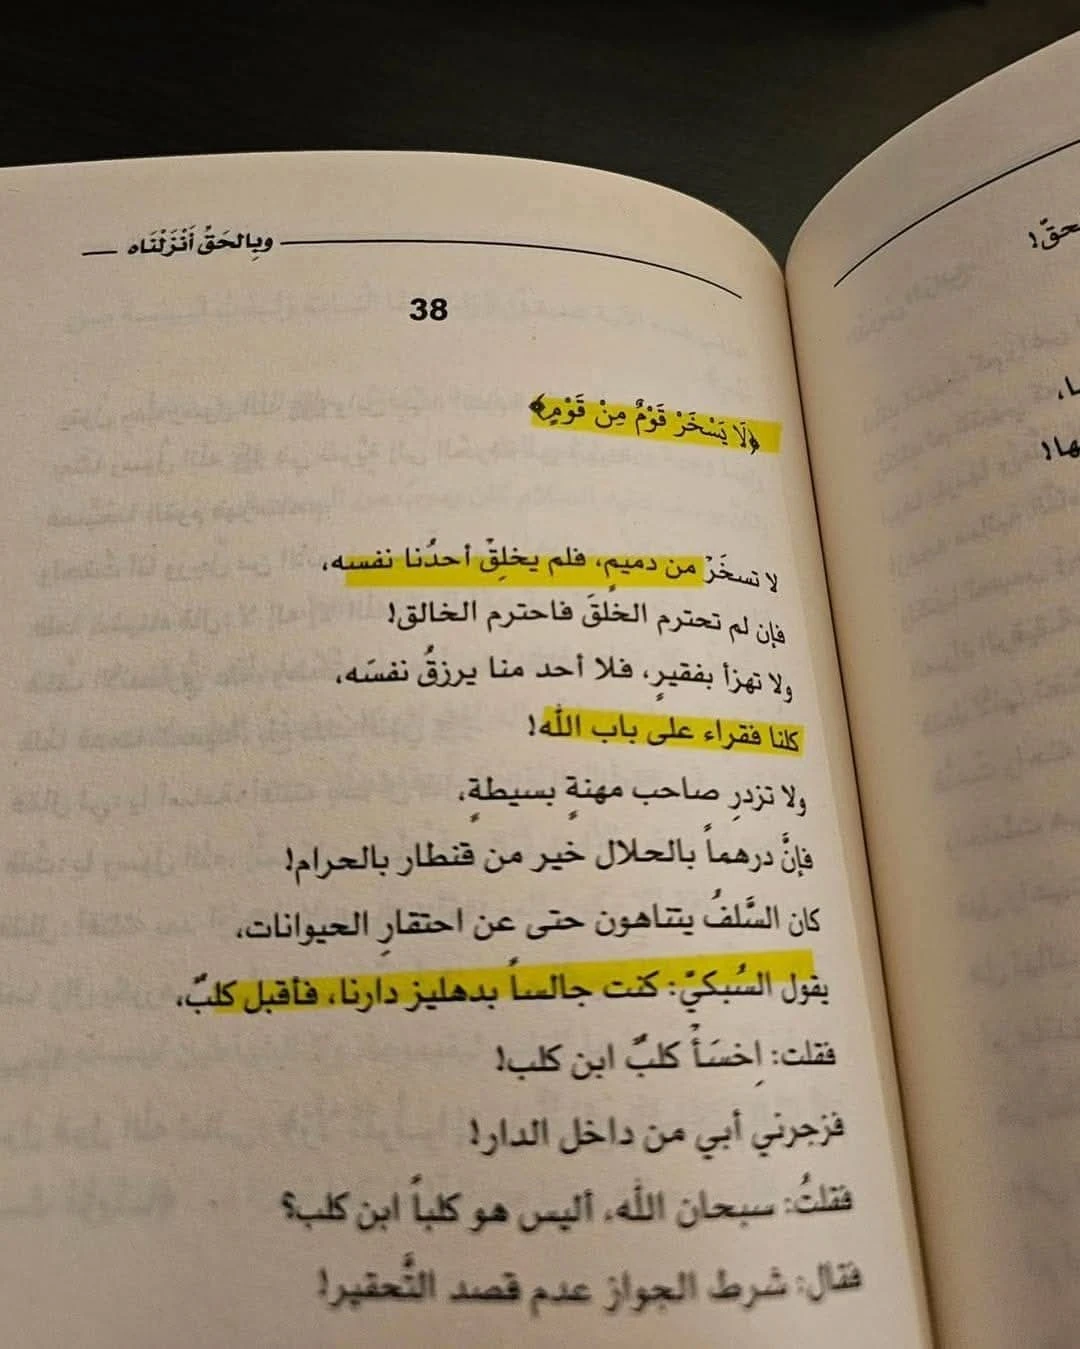 وبِالحَقِّ أَنْزَلْنَاه
38
﴿لَا يَسْخَرْ قَوْمٌ مِنْ قَوْمٍ﴾
لا تسخَرْ من دميمٍ، فلم يخلِقْ أحدُنا نفسه،
فإن لم تحترم الخلقَ فاحترم الخالق!
ولا تهزأ بفقيرٍ، فلا أحد منا يرزقُ نفسَه،
كلنا فقراء على باب الله!
ولا تزدرِ صاحب مهنةٍ بسيطةٍ،
فإنَّ درهماً بالحلال خير من قنطار بالحرام!
كان السَّلفُ يتناهون حتى عن احتقارِ الحيوانات،
يقول السُبكيّ: كنت جالساً بدهليز دارنا، فأقبل كلبٌ،
فقلت: اِخسَأْ كلبٌ ابن كلب!
فزجرني أبي من داخل الدار!
فقلتُ: سبحان الله، أليس هو كلباً ابن كلب؟
فقال: شرط الجواز عدم قصد التَّحقير!